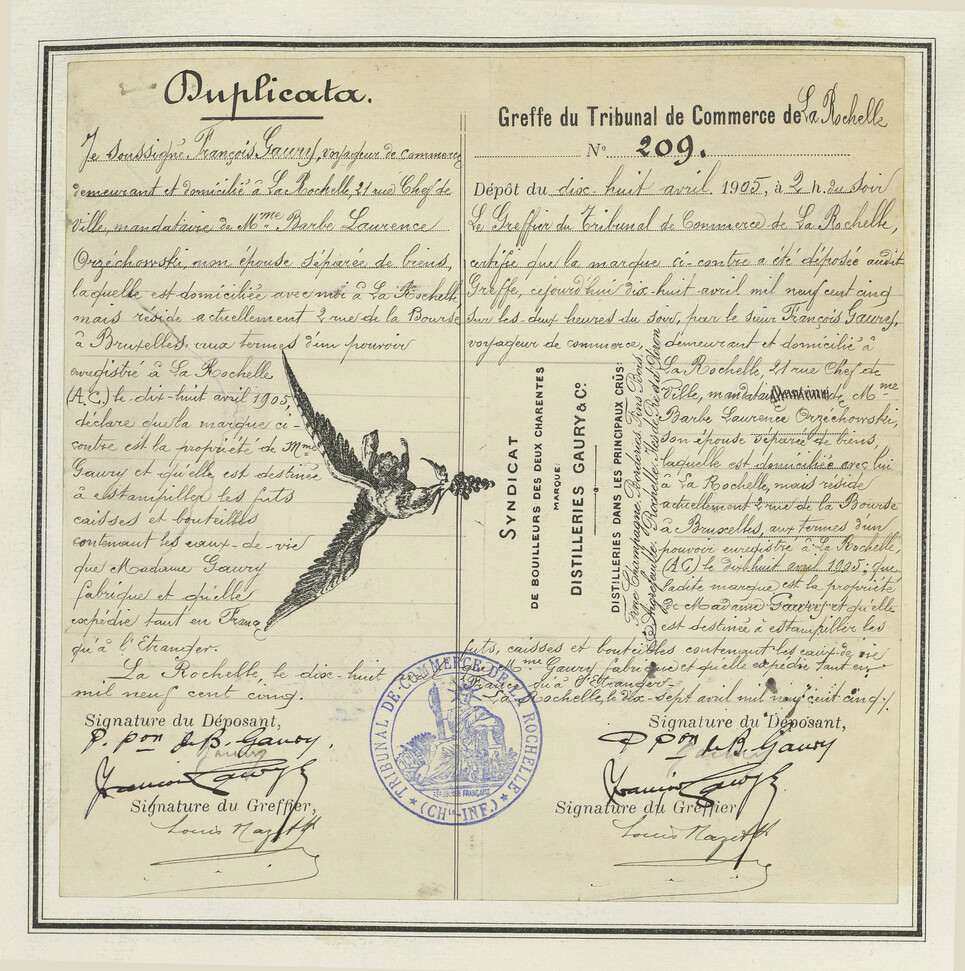 Duplicata.
Je soussigné, François Gaury, voyageur de commerce
demeurant et domicilié à La Rochelle, 21 rue Chef de
Ville, mandataire de Mme Barbe Laurence
Orzéchowski, mon épouse séparée de biens,
laquelle est domiciliée avec moi à La Rochelle,
mais réside actuellement 2 rue de la Bourse
à Bruxelles, aux termes d'un pouvoir
enregistré à La Rochelle
(A.C.) le dix-huit avril 1905,
déclare que la marque ci-
contre est la propriété de Mme
Gaury et qu'elle est destinée
à estampiller les fûts
caisses et bouteilles
contenant les eaux-de-vie
que Madame Gaury
fabrique et qu'elle
expédie tant en France
qu'à l'Etranger.
La Rochelle, le dix-huit
mil neuf cent cinq.
Signature du Déposant,
P. pon de B. Gaury.
François Gaury
Signature du Greffier,
Louis
Greffe du Tribunal de Commerce de La Rochelle
N° 209.
Dépôt du dix-huit avril 1905, à 2 h. du soir
Le Greffier du Tribunal de Commerce de La Rochelle,
certifie que la marque ci-contre a été déposée audit
Greffe, cejourd'hui dix-huit avril mil neuf cent cinq
sur les deux heures du soir, par le sieur François Gaury,
voyageur de commerce, demeurant et domicilié à
La Rochelle, 21 rue Chef de
Ville, mandataire de Mme
Barbe Laurence Orzéchowski,
son épouse séparée de biens,
laquelle est domiciliée avec lui
à La Rochelle, mais réside
actuellement 2 rue de la Bourse
à Bruxelles, aux termes d'un
pouvoir enregistré à La Rochelle,
(AC) le dix huit avril 1905; que
ladite marque est la propriété
de Madame Gaury et qu'elle
est destinée à estampiller les
fûts, caisses et bouteilles contenant les eaux-de-vie
que Mme Gaury fabrique et qu'elle expédie tant en
France qu'à l'Etranger
La Rochelle, le dix-sept avril mil neuf cent cinq
Signature du Déposant,
P pon de B. Gaury
François Gaury
Signature du Greffier
Louis
SYNDICAT
DE BOUILLEURS DES DEUX CHARENTES
MARQUE
DISTILLERIES GAURY & Co.
DISTILLERIES DANS LES PRINCIPAUX CRÛS:
Fine Champagne, Borderies, Fins Bois,
Aigrefeuille, Rochelle, Iles de Ré et d'Oléron
TRIBUNAL DE COMMERCE DE LA ROCHELLE
RÉPUBLIQUE FRANÇAISE
(CHte-INF.)